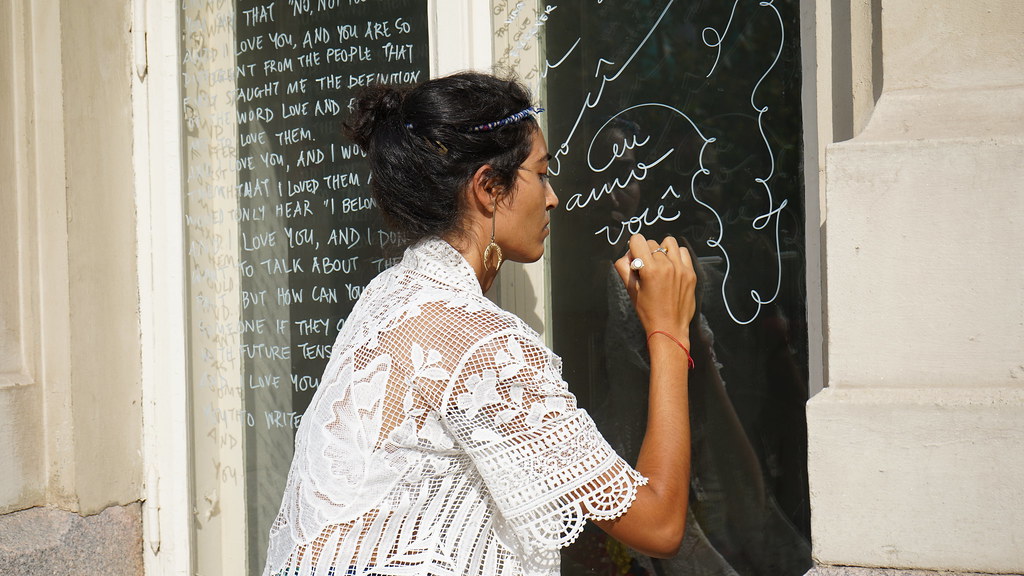 THAT "NO, NOT
LOVE YOU, AND YOU ARE SO
NT FROM THE PEOPLE THAT
AUGHT ME THE DEFINITION
WORD LOVE AND
LOVE THEM.
OVE YOU, AND I WO
THAT I LOVED THEM
ONLY HEAR "I BELON
I LOVE YOU, AND I DO
TO TALK ABOUT THE
BUT HOW CAN YOU
EONE IF THEY
FUTURE TENS
I LOVE YOU
TO WRITE
eu
amo
você